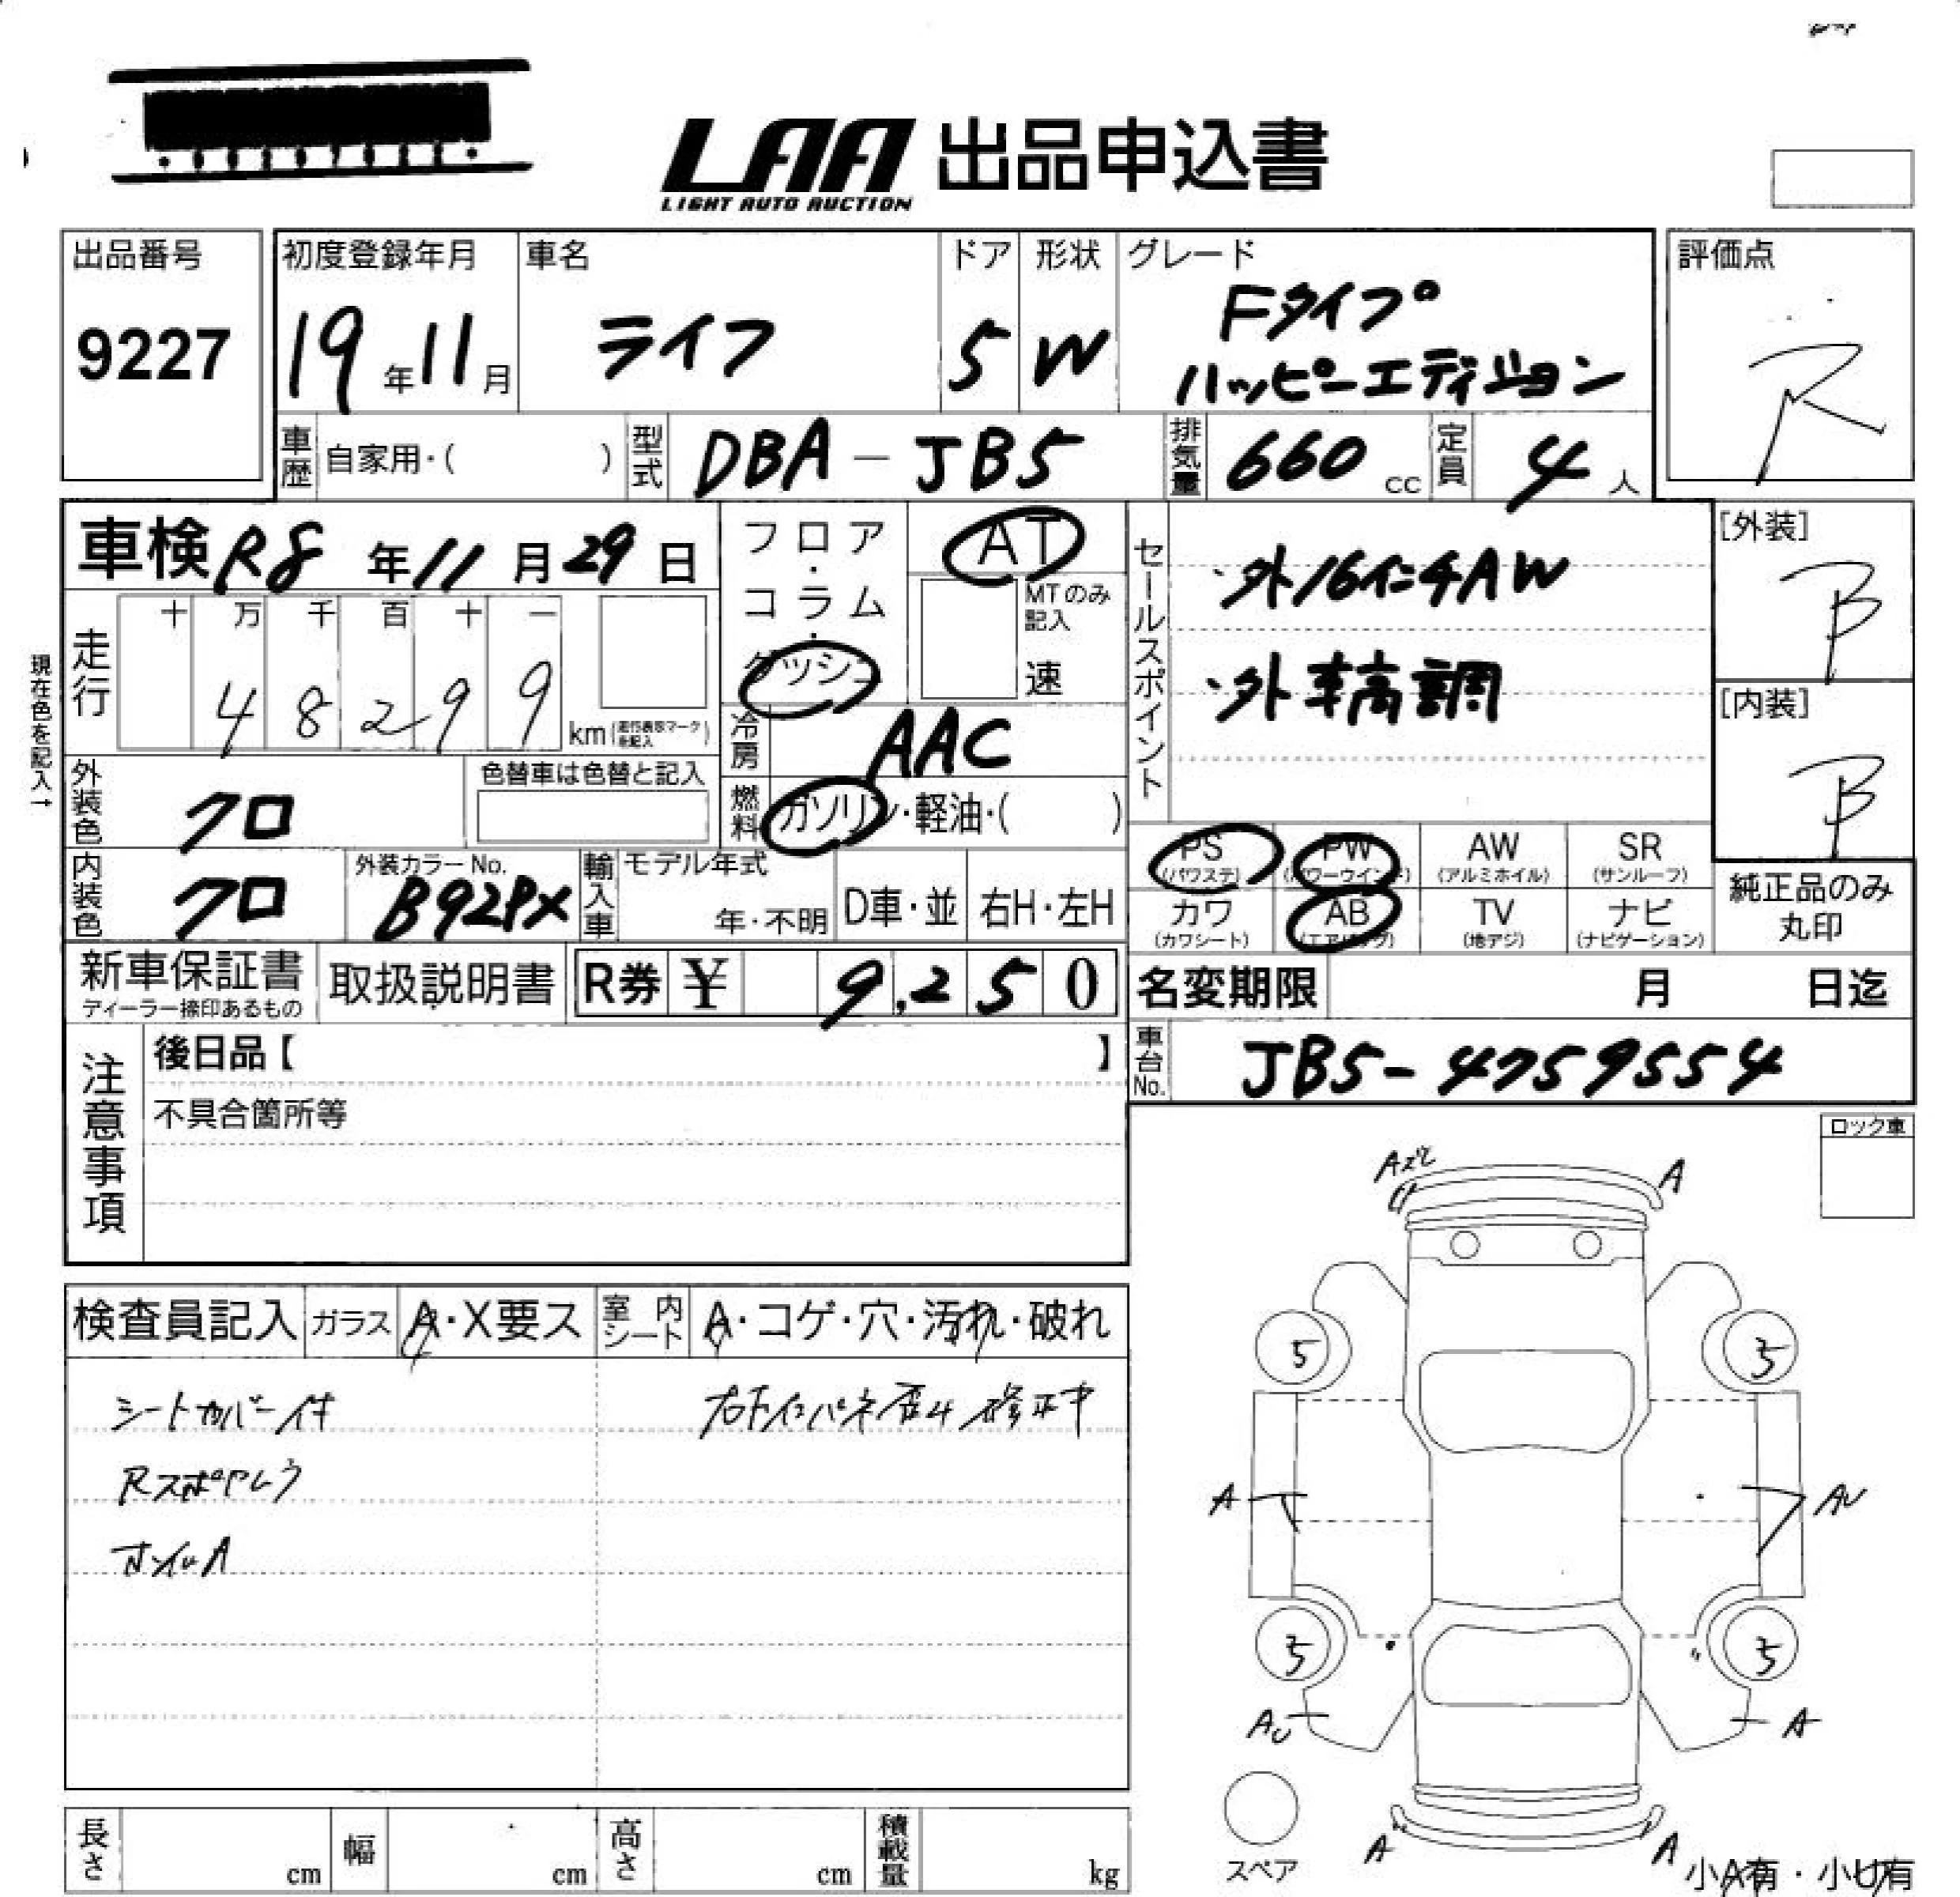 LAA 出品申込書
LIGHT AUTO AUCTION
出品番号
9227
初度登録年月
19年11月
車名
ライフ
ドア
5
形状
W
グレード
Fタイプ
ハッピーエディション
評価点
R
車歴 自家用・( )
型式 DBA-JB5
排気量 660cc
定員 4人
車検 R8年11月29日
フロア・コラム・ダッシュ
AT
MTのみ記入
速
走行
十 万 千 百 十 一
4 8 2 9 9
km(走行表示マークを記入)
現在色を記入→
冷房 AAC
燃料 ガソリン・軽油・( )
セールスポイント
・外16インチAW
・外車高調
[外装]
B
[内装]
B
外装色 クロ
色替車は色替と記入
内装色 クロ
外装カラーNo.
B92PX
輸入車 モデル年式
年・不明
D車・並
右H・左H
PS (パワステ)
PW (パワーウインド)
AW (アルミホイル)
SR (サンルーフ)
カワ (カワシート)
AB (エアバッグ)
TV (地アジ)
ナビ (ナビゲーション)
純正品のみ
丸印
新車保証書
ディーラー捺印あるもの
取扱説明書
R券 ¥ 9,250
名変期限 月 日迄
車台No. JB5-4759554
注意事項
後日品【 】
不具合箇所等
ロック車
検査員記入
ガラス A・X要ス
室内シート A・コゲ・穴・汚れ・破れ
シートカバー付
Rスポヤレう
ホイルA
右Fインパネ歪み修正中
A
5
5
A
AU
5
5
AU
A
スペア
A
A
小A有・小U有
長さ cm
幅 cm
高さ cm
積載量 kg